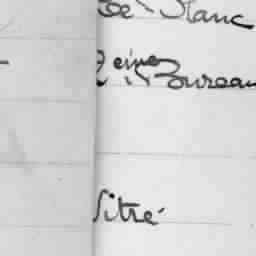 Le Blanc
Reine
Bureau
Vitré